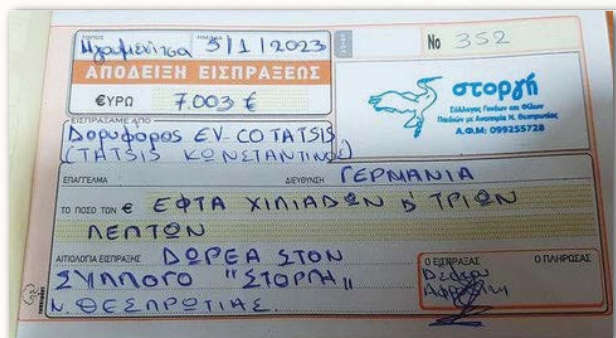 ΤΟΠΟΣ ΗΜΕΡ/ΝΙΑ
Ηγουμενίτσα 3/1/2023 No 352
ΑΠΟΔΕΙΞΗ ΕΙΣΠΡΑΞΕΩΣ
€ΥΡΩ 7.003 €
στοργή
Σύλλογος Γονέων και Φίλων
Παιδιών με Αναπηρία Ν. Θεσπρωτίας
Α.Φ.Μ: 099255728
ΕΙΣΠΡΑΞΑΜΕ ΑΠΟ
Δορυφόρος EV-CO TATSIS
(TATSIS ΚΩΝΣΤΑΝΤΙΝΟΣ)
ΕΠΑΓΓΕΛΜΑ ΔΙΕΥΘΥΝΣΗ ΓΕΡΜΑΝΙΑ
ΤΟ ΠΟΣΟ ΤΩΝ € ΕΦΤΑ ΧΙΛΙΑΔΩΝ & ΤΡΙΩΝ
ΛΕΠΤΩΝ
ΑΙΤΙΟΛΟΓΙΑ ΕΙΣΠΡΑΞΗΣ ΔΩΡΕΑ ΣΤΟΝ
ΣΥΛΛΟΓΟ "ΣΤΟΡΓΗ"
Ν. ΘΕΣΠΡΩΤΙΑΣ.
Ο ΕΙΣΠΡΑΞΑΣ Ο ΠΛΗΡΩΣΑΣ